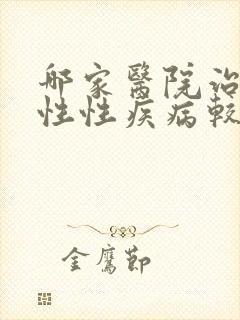 那家醫院治
性性疾病較
金鷹節